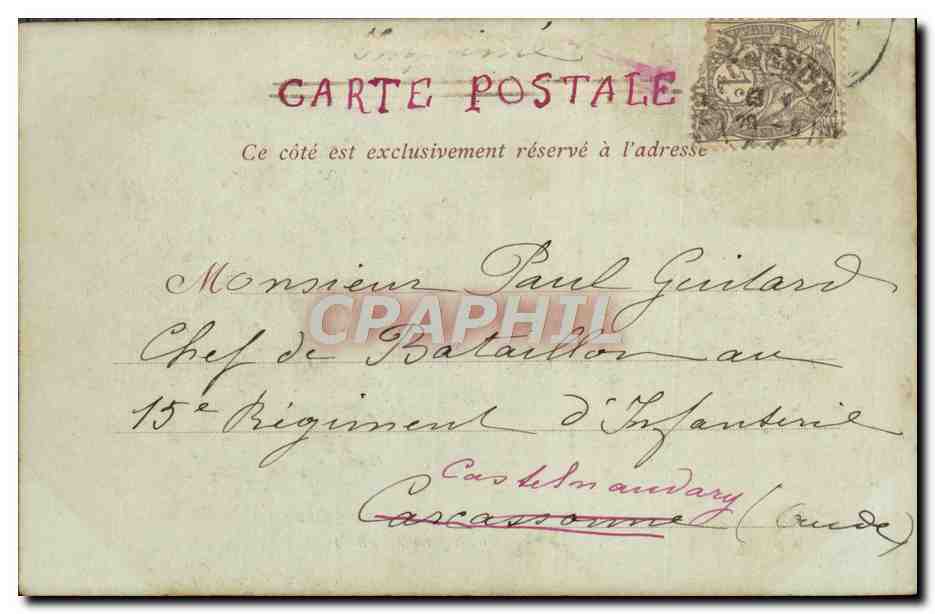 Imprimé
CARTE POSTALE
Ce côté est exclusivement réservé à l'adresse
Monsieur Paul Guilard
CPAPHIL
Chef de Bataillon au
15e Régiment d'Infanterie
Castelnaudary
Carcassonne (Aude)